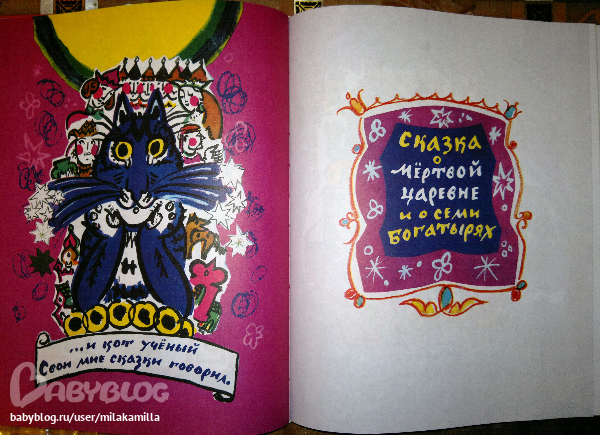 ...и кот учёный
Свои мне сказки говорил.
BABYBLOG
babyblog.ru/user/milakamilla
Сказка
о
мёртвой
царевне
и о семи
богатырях